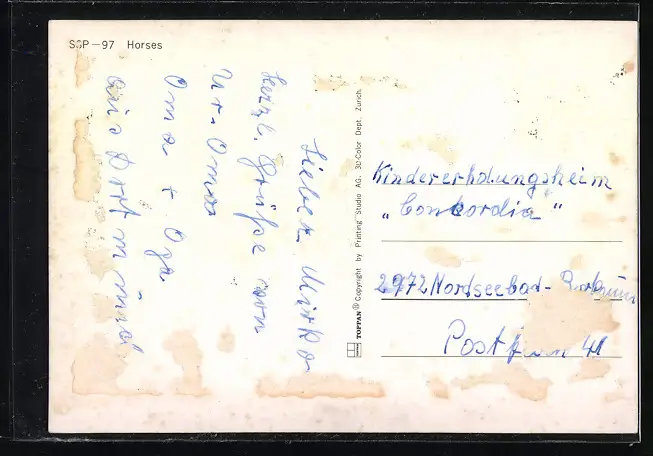 SSP-97 Horses
Lieber Mirko
Herzl. Grüße von
Ur-Omas
Oma + Opa
aus Dortmund
TOPPAN ® Copyright by Printing Studio AG, 3D-Color Dept. Zurich.
Kindererholungsheim
„Concordia"
2972 Nordseebad-Borkum
Postfach 41